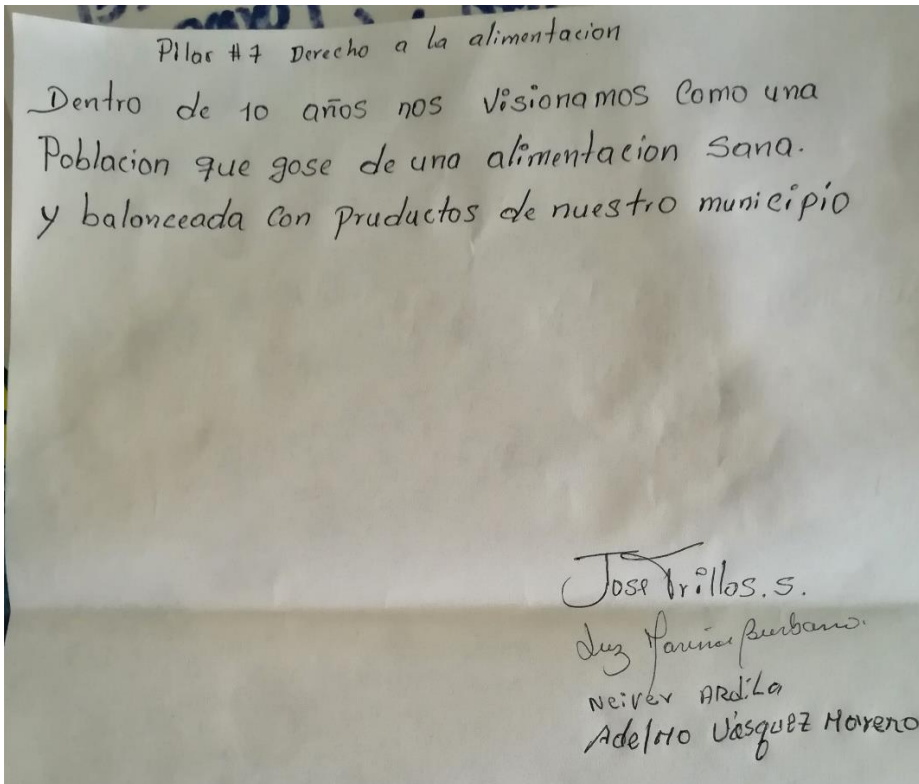 Pilar #7 Derecho a la alimentacion
Dentro de 10 años nos visionamos Como una
Poblacion que gose de una alimentacion Sana.
y balanceada Con pruductos de nuestro municipio
Jose Trillos. S.
Luz Marina Burbano.
Neiver ARdiLa
Adelmo Vásquez Moreno